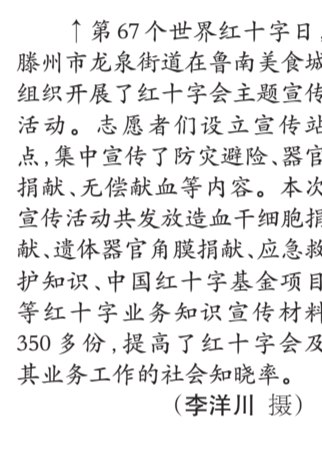 ↑第67个世界红十字日，
滕州市龙泉街道在鲁南美食城
组织开展了红十字会主题宣传
活动。志愿者们设立宣传站
点，集中宣传了防灾避险、器官
捐献、无偿献血等内容。本次
宣传活动共发放造血干细胞捐
献、遗体器官角膜捐献、应急救
护知识、中国红十字基金项目
等红十字业务知识宣传材料
350多份，提高了红十字会及
其业务工作的社会知晓率。
（李洋川 摄）